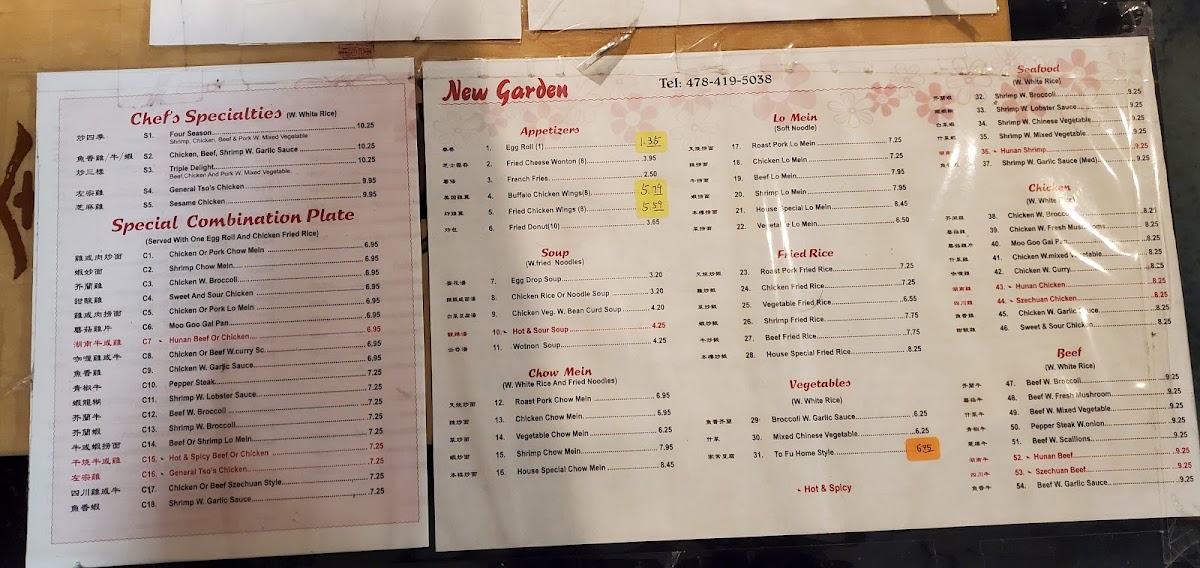 Chef's Specialties (W. White Rice)
炒四季 S1. Four Season 10.25
Shrimp, Chicken, Beef & Pork W. Mixed Vegetable
魚香雞/牛/蝦 S2. Chicken, Beef, Shrimp W. Garlic Sauce 10.25
炒三樣 S3. Triple Delight 10.25
Beef, Chicken And Pork W. Mixed Vegetable.
左宗雞 S4. General Tso's Chicken 9.95
芝麻雞 S5. Sesame Chicken 9.95
Special Combination Plate
(Served With One Egg Roll And Chicken Fried Rice)
雞或肉炒面 C1. Chicken Or Pork Chow Mein 6.95
蝦炒面 C2. Shrimp Chow Mein 6.95
芥蘭雞 C3. Chicken W. Broccoli 6.95
甜酸雞 C4. Sweet And Sour Chicken 6.95
雞或肉撈面 C5. Chicken Or Pork Lo Mein 6.95
蘑菇雞片 C6. Moo Goo Gai Pan 6.95
湖南牛或雞 C7 Hunan Beef Or Chicken 6.95
咖喱雞或牛 C8. Chicken Or Beef W.curry Sc 6.95
魚香雞 C9. Chicken W. Garlic Sauce 6.95
青椒牛 C10. Pepper Steak 7.25
蝦龍糊 C11. Shrimp W. Lobster Sauce 7.25
芥蘭牛 C12. Beef W. Broccoli 7.25
芥蘭蝦 C13. Shrimp W. Broccoli 7.25
牛或蝦撈面 C14. Beef Or Shrimp Lo Mein 7.25
干燒牛或雞 C15. Hot & Spicy Beef Or Chicken 7.25
左宗雞 C16. General Tso's Chicken 7.25
四川雞或牛 C17. Chicken Or Beef Szechuan Style 7.25
魚香蝦 C18. Shrimp W. Garlic Sauce 7.25
New Garden
Tel: 478-419-5038
Appetizers
春卷 1. Egg Roll (1) 1.35
芝士雲吞 2. Fried Cheese Wonton (8) 3.95
薯條 3. French Fries 2.50
4. Buffalo Chicken Wings(8) 5.79
炸雞翼 5. Fried Chicken Wings (8) 5.59
炸包 6. Fried Donut(10) 3.65
Soup
(W.fried Noodles)
蛋花湯 7. Egg Drop Soup 3.20
8. Chicken Rice Or Noodle Soup 3.20
9. Chicken Veg. W. Bean Curd Soup 4.20
酸辣湯 10. Hot & Sour Soup 4.25
雲吞湯 11. Wotnon Soup 4.25
Chow Mein
(W. White Rice And Fried Noodles)
叉燒炒面 12. Roast Pork Chow Mein 6.95
雞炒面 13. Chicken Chow Mein 6.95
菜炒面 14. Vegetable Chow Mein 6.25
蝦炒面 15. Shrimp Chow Mein 7.95
本樓炒面 16. House Special Chow Mein 8.45
Lo Mein
(Soft Noodle)
叉燒撈面 17. Roast Pork Lo Mein 7.25
雞撈面 18. Chicken Lo Mein 7.25
牛撈面 19. Beef Lo Mein 7.95
蝦撈面 20. Shrimp Lo Mein 7.95
本樓撈面 21. House Special Lo Mein 8.45
菜撈面 22. Vegetable Lo Mein 6.50
Fried Rice
叉燒炒飯 23. Roast Pork Fried Rice 7.25
雞炒飯 24. Chicken Fried Rice 7.25
菜炒飯 25. Vegetable Fried Rice 6.55
蝦炒飯 26. Shrimp Fried Rice 7.25
牛炒飯 27. Beef Fried Rice 7.25
本樓炒飯 28. House Special Fried Rice 8.25
Vegetables
(W. White Rice)
魚香芥蘭 29. Broccoli W. Garlic Sauce 6.25
什菜 30. Mixed Chinese Vegetable 6.25
家常豆腐 31. To Fu Home Style 6.95
Hot & Spicy
Seafood
(W. White Rice)
芥蘭蝦 32. Shrimp W. Broccoli 9.25
蝦龍糊 33. Shrimp W. Lobster Sauce 9.25
白菜蝦 34. Shrimp W. Chinese Vegetable 9.25
什菜蝦 35. Shrimp W. Mixed Vegetable 9.25
湖南蝦 36. Hunan Shrimp 9.25
魚香蝦 37. Shrimp W. Garlic Sauce (Med) 9.25
Chicken
(W. White Rice)
芥蘭雞 38. Chicken W. Broccoli 8.25
蘑菇雞 39. Chicken W. Fresh Mushrooms 8.25
蘑菇雞片 40. Moo Goo Gai Pan 8.25
什菜雞 41. Chicken W.mixed Vegetable 8.25
咖喱雞 42. Chicken W. Curry 8.25
湖南雞 43. Hunan Chicken 8.25
四川雞 44. Szechuan Chicken 8.25
魚香雞 45. Chicken W. Garlic Sauce 8.25
甜酸雞 46. Sweet & Sour Chicken 8.25
Beef
(W. White Rice)
芥蘭牛 47. Beef W. Broccoli 9.25
蘑菇牛 48. Beef W. Fresh Mushroom 9.25
什菜牛 49. Beef W. Mixed Vegetable 9.25
青椒牛 50. Pepper Steak W.onion 9.25
51. Beef W. Scallions 9.25
湖南牛 52. Hunan Beef 9.25
四川牛 53. Szechuan Beef 9.25
魚香牛 54. Beef W. Garlic Sauce 9.25